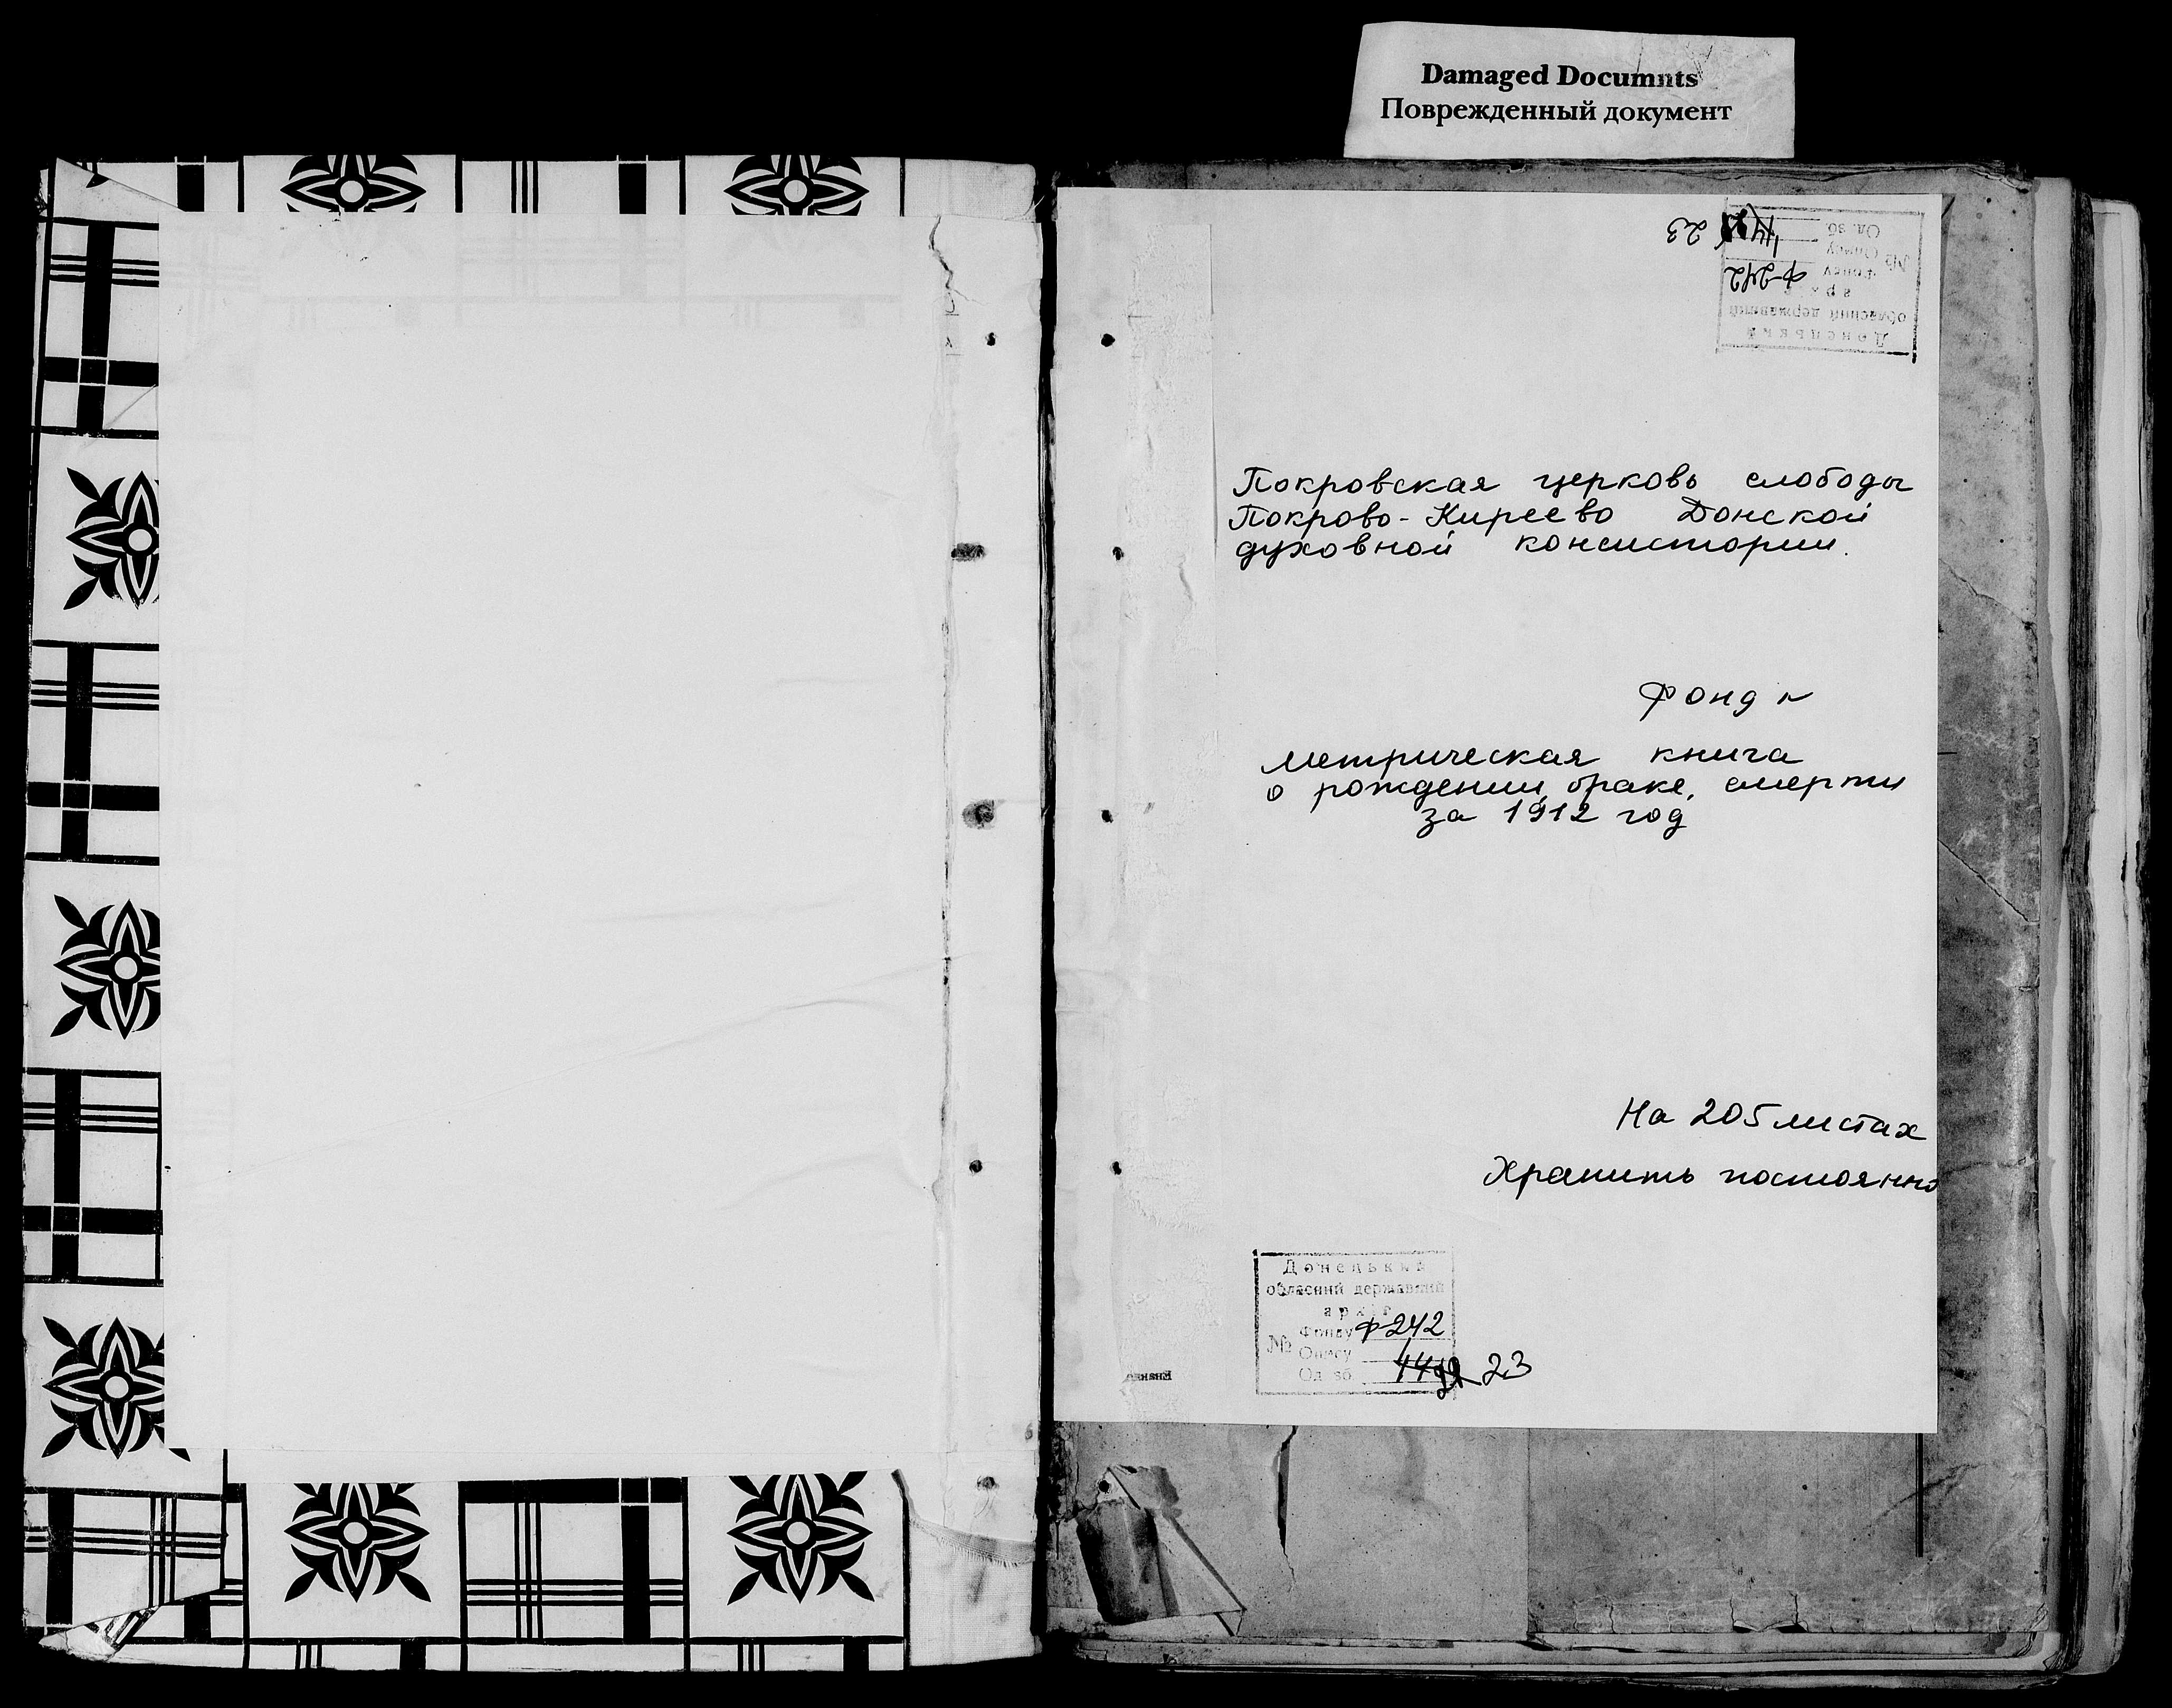 Damaged Documnts
Поврежденный документ
Донецький
обласний державний
Фонду Ф-242
№ Опису
Од. зб. 23
Покровская церковь слободы
Покрово-Киреево Донской
духовной консистории.
Фонд №
метрическая книга
о рождении, браке, смерти
за 1912 год
На 205 листах
Хранить постоянно
Донецький
обласний державний
архів
Фонду Ф-242
№ Опису
Од. зб. 23